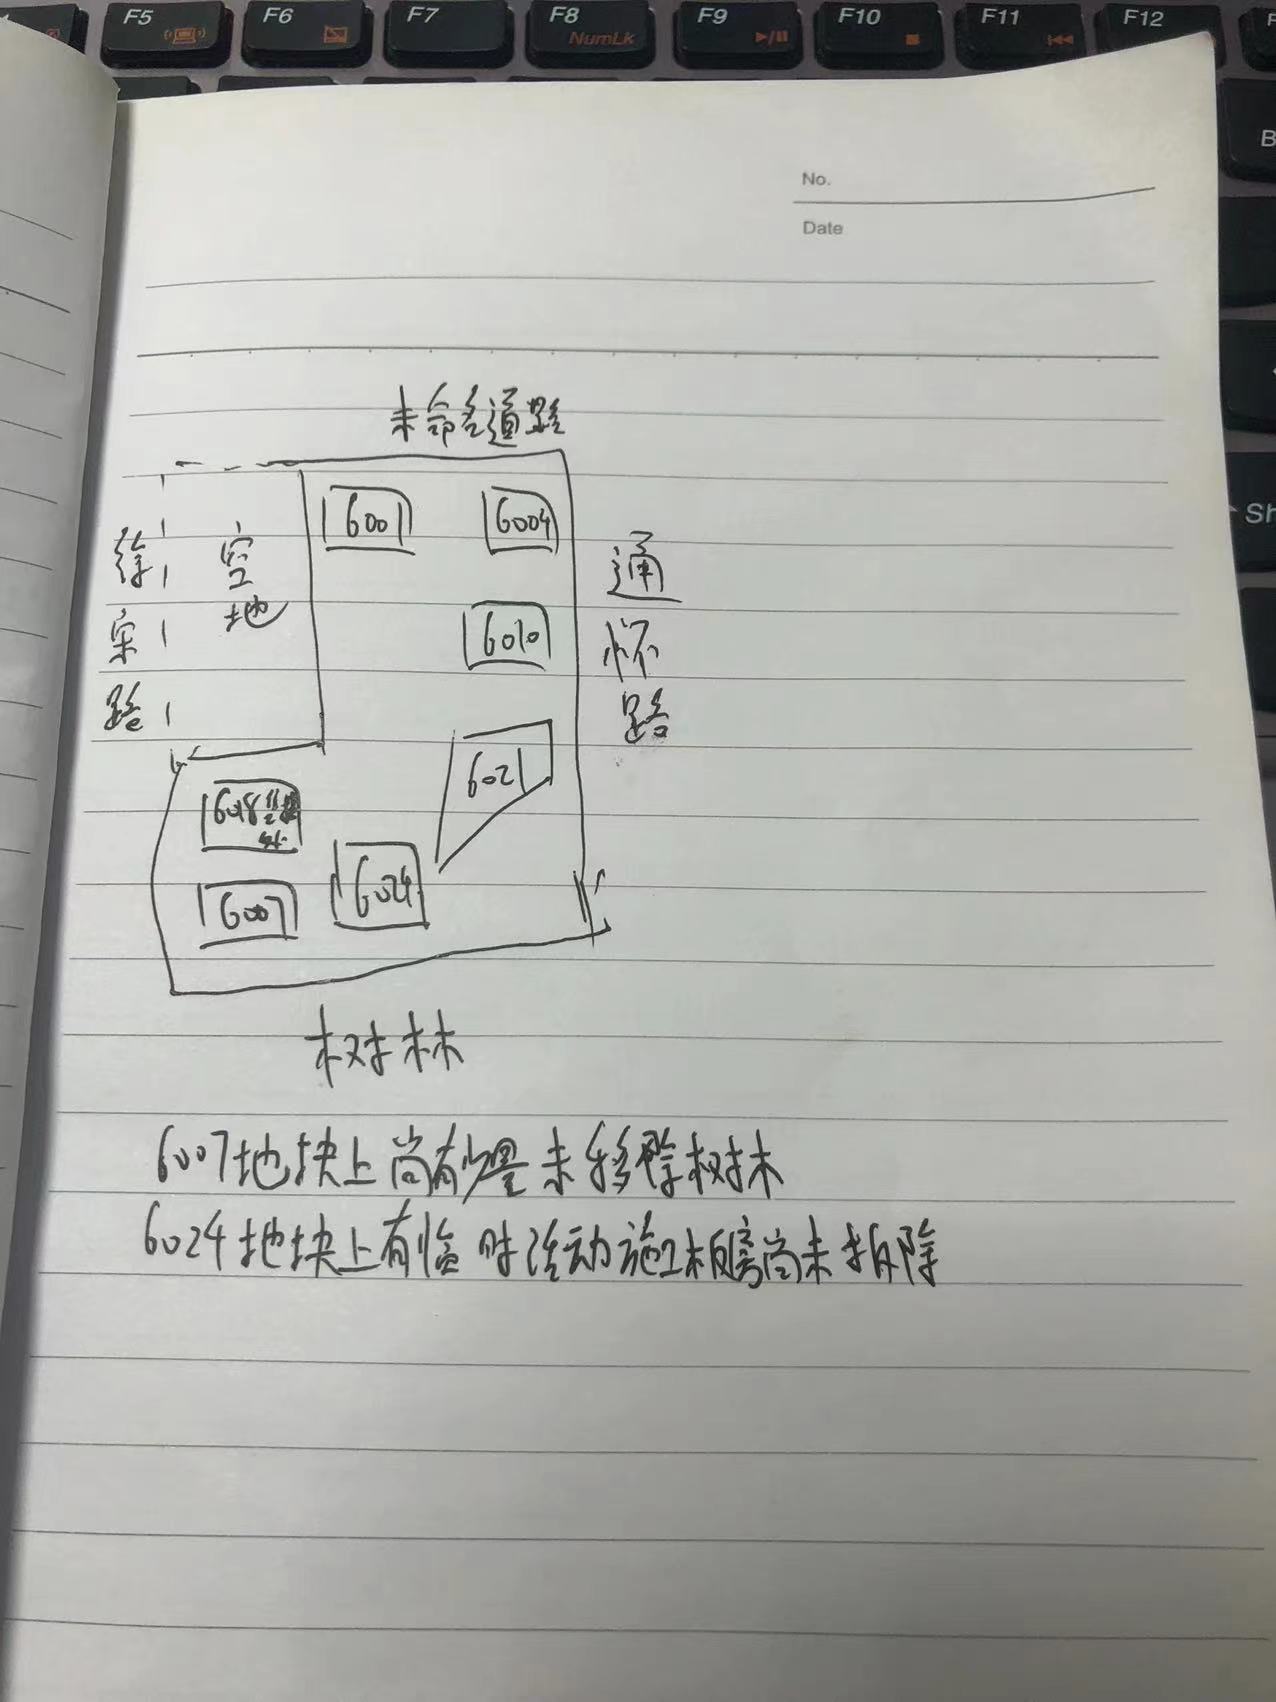 F5
F6
F7
F8
NumLk
F9
F10
F11
F12
B
Sh
No.
Date
未命名道路
徐宋路
空地
6001
6004
通怀路
6010
6021
6018
6007
6024
树林
6007地块上尚有少量未移除树林
6024地块上有临时活动施工板房尚未拆除